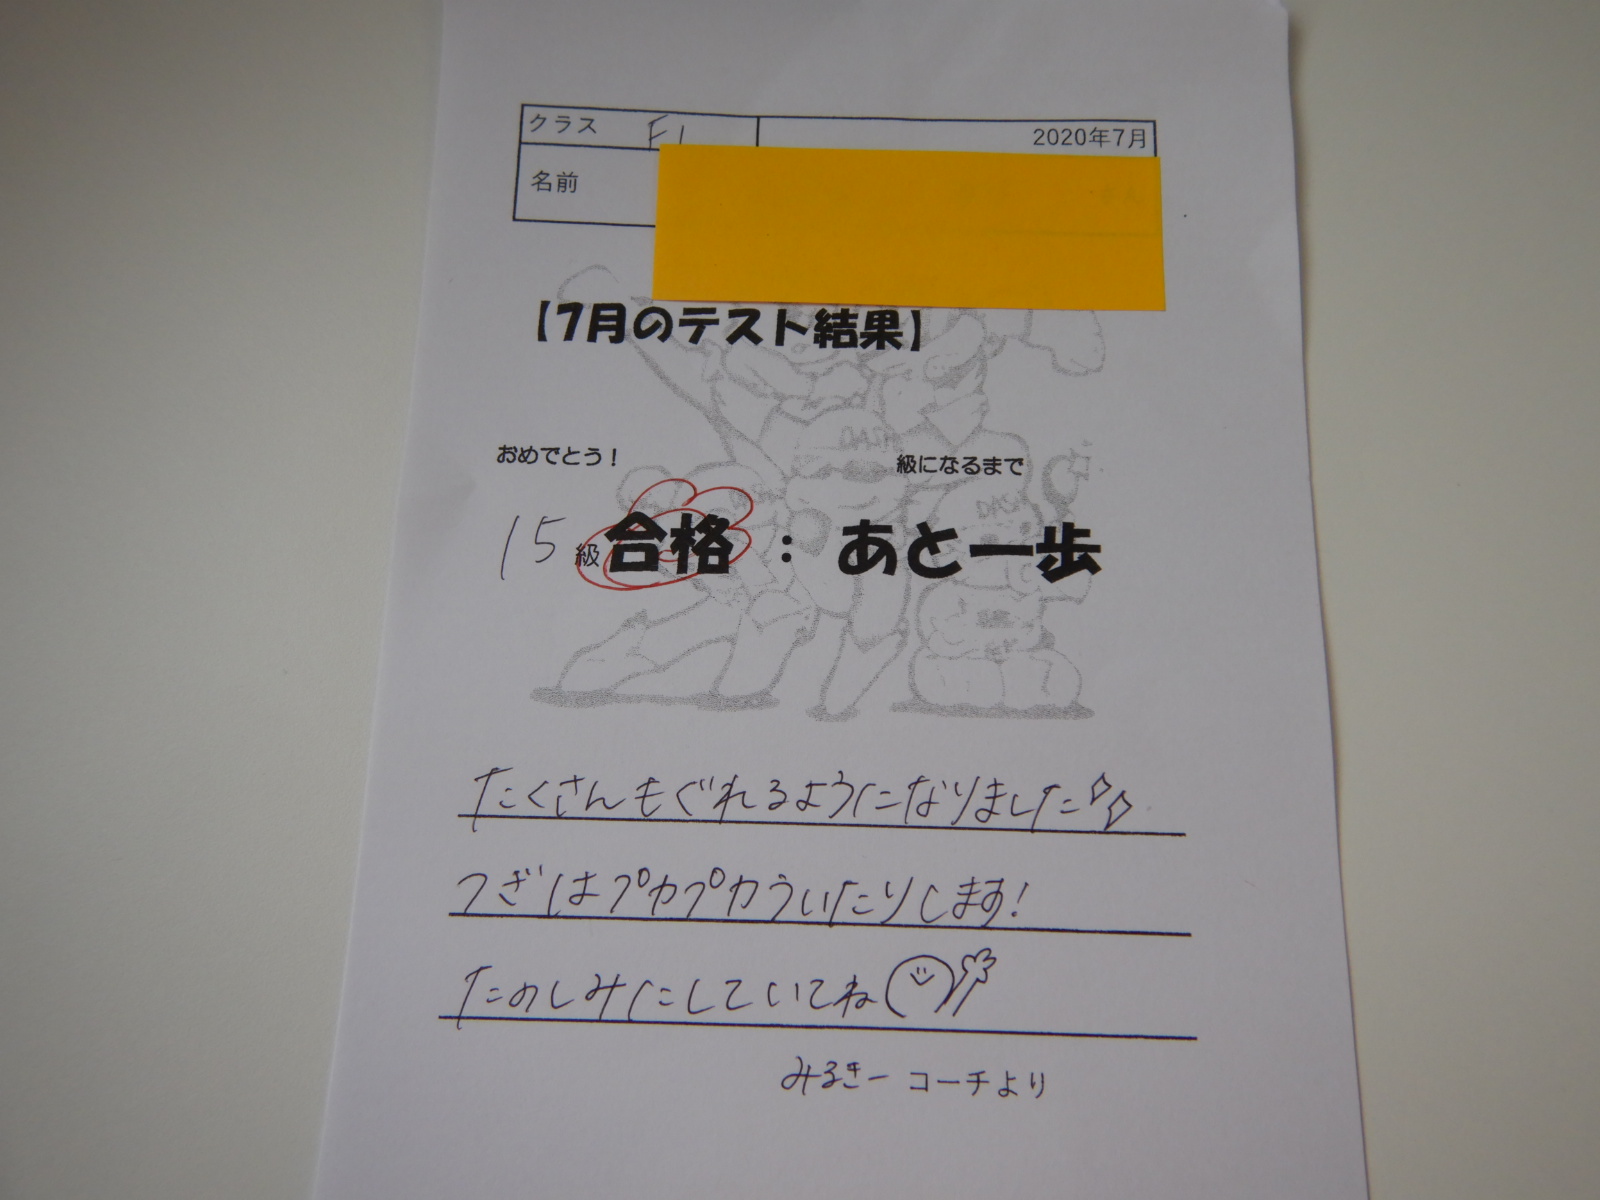 クラス F1 2020年7月
名前
【7月のテスト結果】
おめでとう! 級になるまで
15級 合格 : あと一歩
たくさんもぐれるようになりました
つぎはプカプカういたりします!
たのしみにしていてね
みるきー コーチより